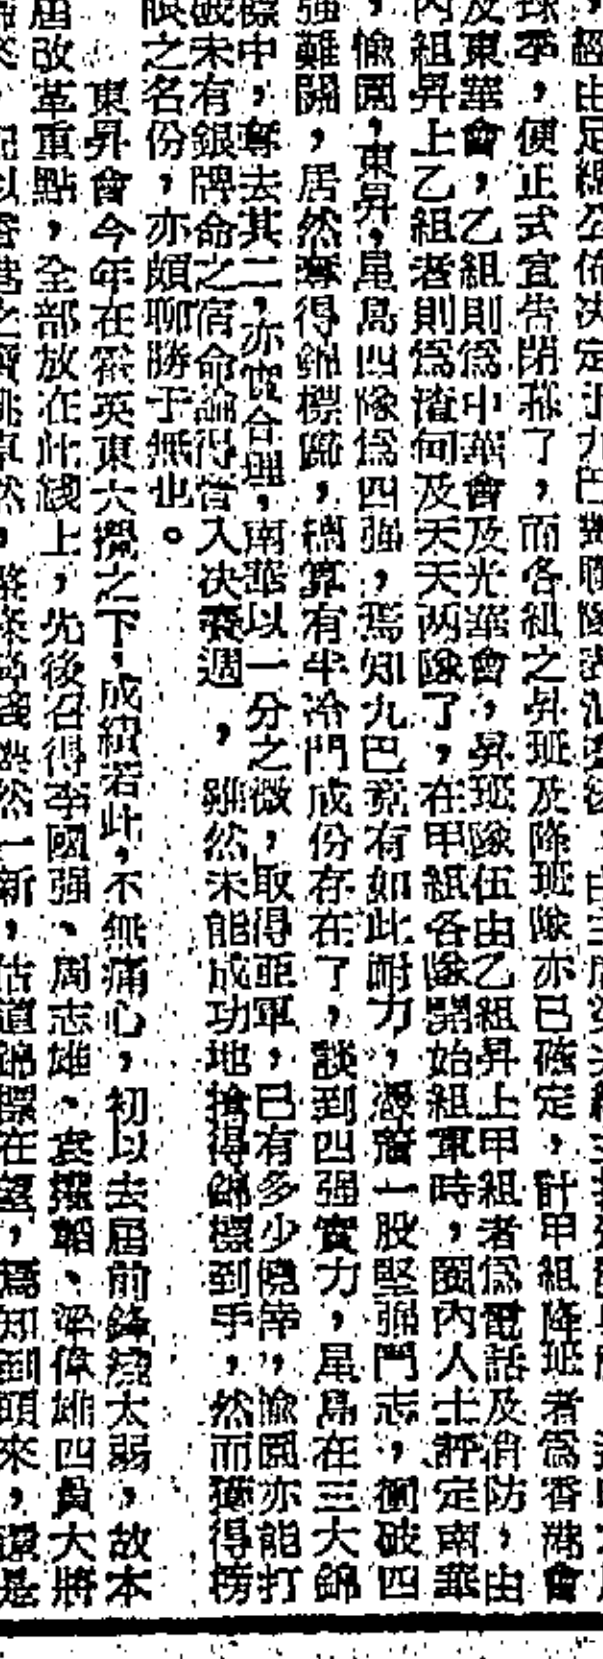 ，經由足總公佈決定
球季，便正式宣告閉幕了，而各組之昇班及降班隊亦已確定，計甲組降班者為香港會
及東華會，乙組則為中華會及光華會，昇班隊伍由乙組昇上甲組者為電話及消防，由
丙組昇上乙組者則為渣甸及天天兩隊了，在甲組各隊開始組軍時，圈內人士評定南華
，愉園，東昇，星島四隊為四强，焉知九巴竟有如此耐力，憑着一股堅强鬥志，衝破四
强難關，居然奪得錦標歸，總算有半冷門成份存在了，談到四强實力，星島在三大錦
標中，奪去其二，亦實合理，南華以一分之微，取得亞軍，已有多少僥倖，愉園亦能打
破未有銀牌命之宿命論得嘗入決賽週，雖然未能成功地搶得錦標到手，然而獲得榜
眼之名份，亦頗聊勝于無也。
東昇會今年在霍英東大攪之下，成績若此，不無痛心，初以去屆前鋒綫太弱，故本
屆改革重點，全部放在此綫上，先後召得李國强、周志雄、袁權韜、梁偉雄四員大將
，配以香港之寶姚卓然，煥然一新，估道錦標在望，焉知到頭來，還是